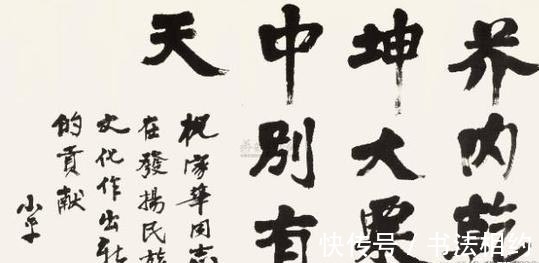 芥内乾
坤大票
中別有
天
祝家華同志
在發揚民族
文化作出新
的貢献
小平
快传号 / 书法相约